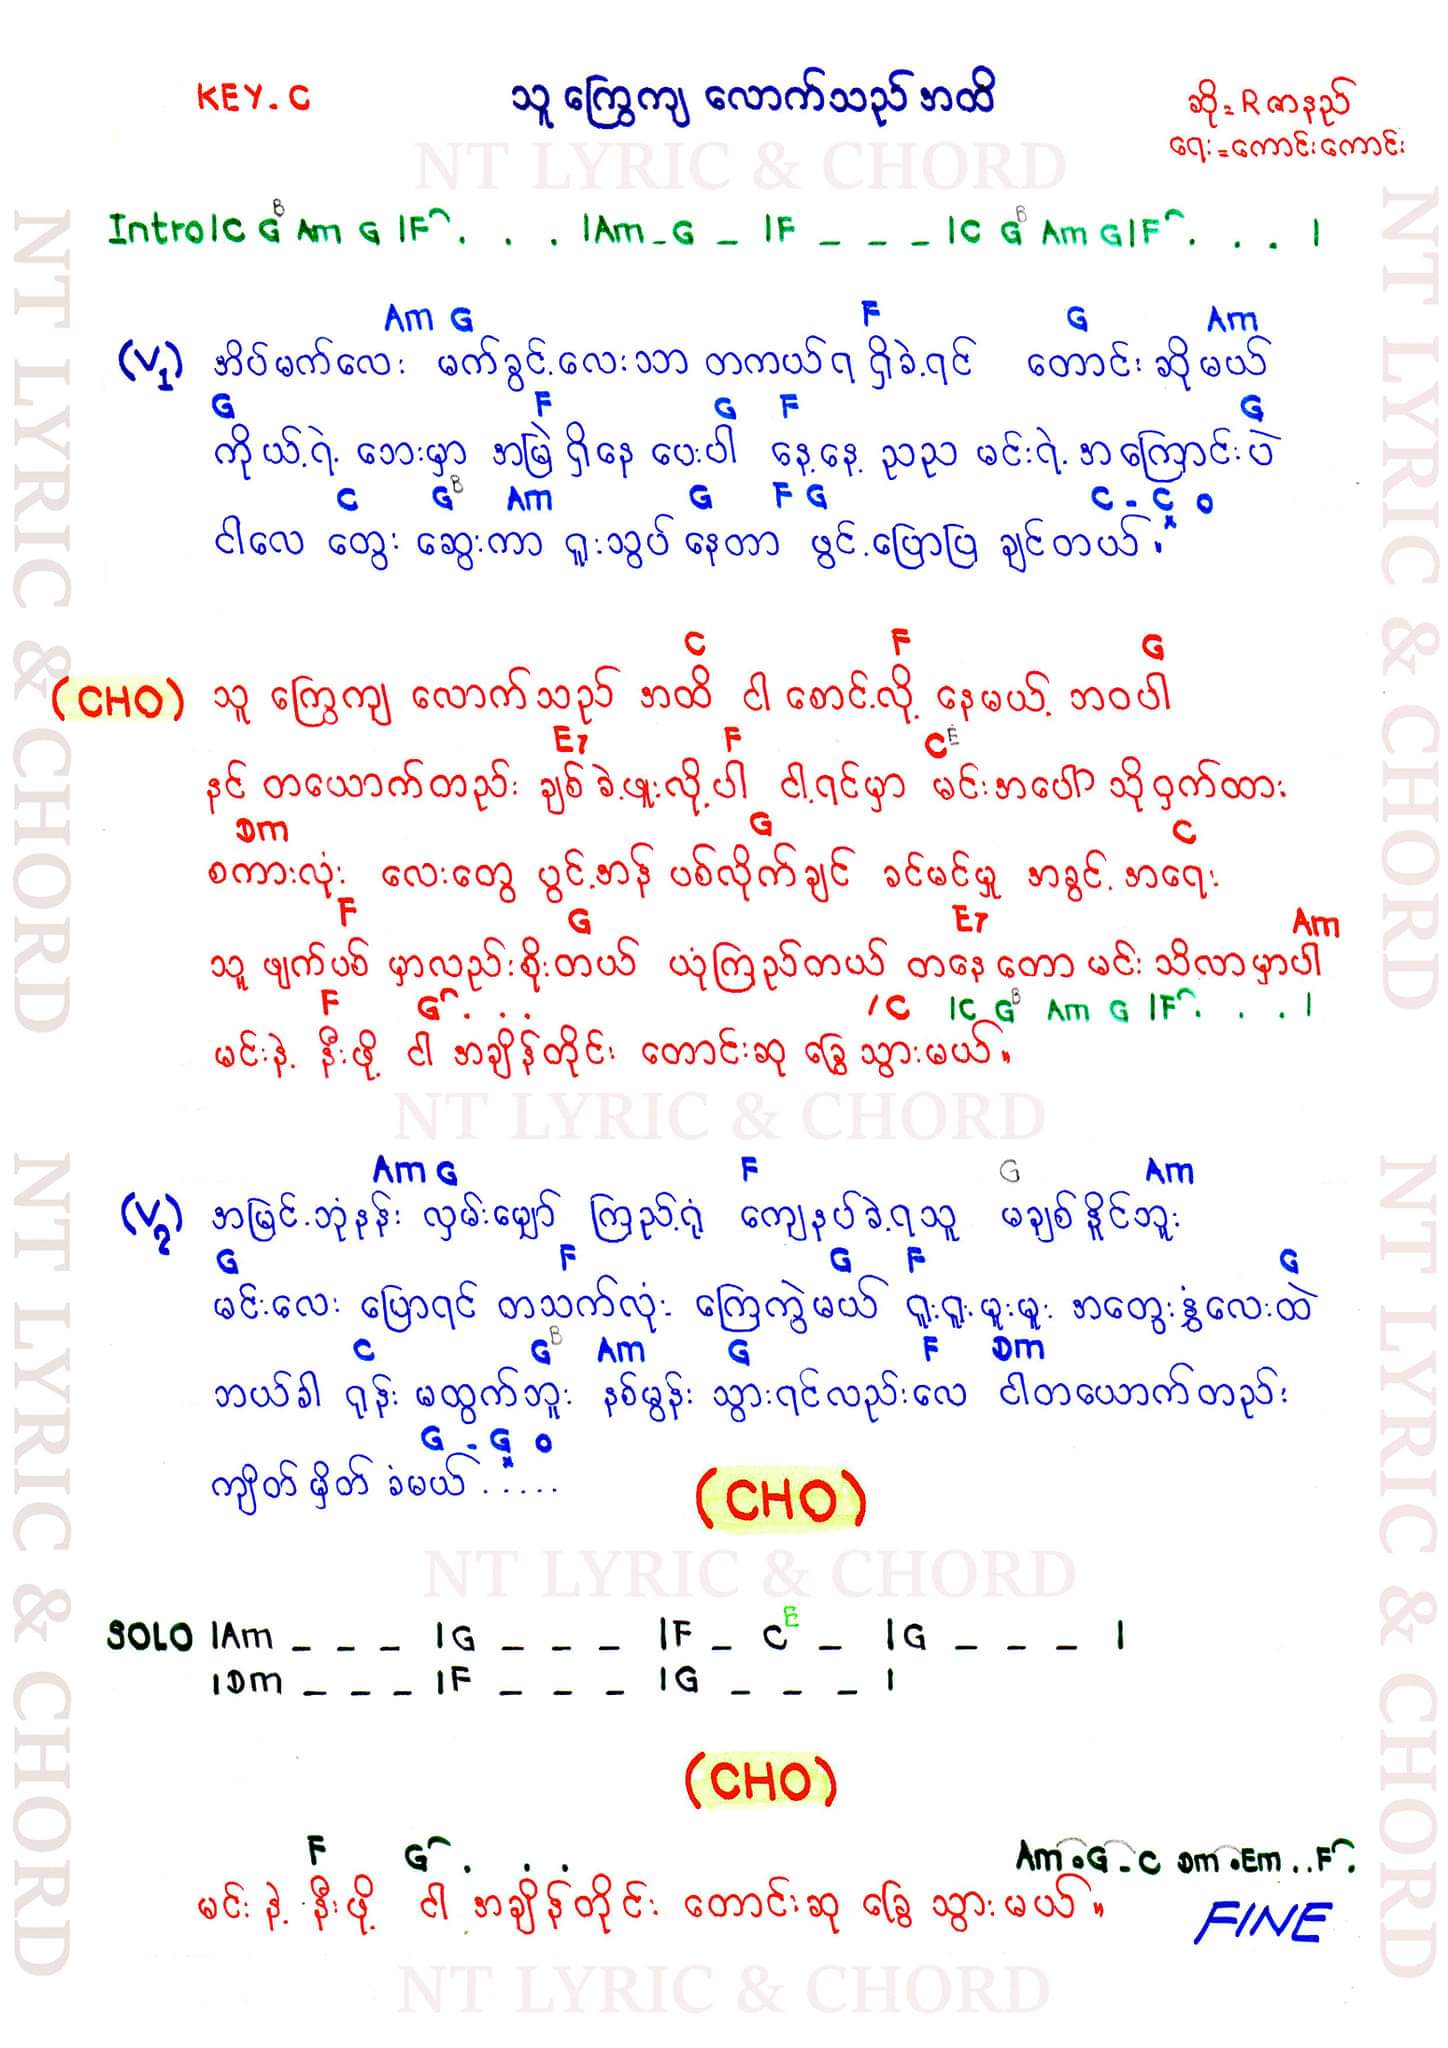 KEY. C
သူ ကြွေကျ လောက်သည် အထိ
ဆို = R ဇာနည်
ရေး = ကောင်းကောင်း
NT LYRIC & CHORD
Intro|C G^B Am G |F . . . |Am - G _ |F _ _ _ |C G^B Am G|F . . . |
Am G F G Am
(V1) အိပ်မက်လေး မက်ခွင့်လေးသာ တကယ်ရ ရှိခဲ့ရင် တောင်း ဆိုမယ်
G F G F G
ကိုယ့်ရဲ့ ဘေးမှာ အမြဲ ရှိနေ ပေးပါ နေ့နေ့ ညည မင်းရဲ့ အကြောင်းပဲ
C G^B Am G F G C - C x 0
ငါလေ တွေး ဆွေးကာ ရူးသွပ် နေတာ ဖွင့်ပြောပြ ချင်တယ်။
C F G
(CHO) သူ ကြွေကျ လောက်သည် အထိ ငါ စောင့်လို့ နေမယ့် ဘဝပါ
E7 F C^E
နင် တယောက်တည်း ချစ်ခဲ့ဖူးလို့ပါ ငါ့ရင်မှာ မင်းအပေါ် သိုဝှက်ထား
Dm G C
စကားလုံး လေးတွေ ပွင့်အန် ပစ်လိုက်ချင် ခင်မင်မှု အခွင့် အရေး
F G E7 Am
သူ ဖျက်ပစ် မှာလည်းစိုးတယ် ယုံကြည်တယ် တနေ့တော့ မင်း သိလာမှာပါ
F G . . . /C |C G^B Am G |F . . . |
မင်းနဲ့ နီးဖို့ ငါ အချိန်တိုင်း တောင်းဆု ခြွေသွားမယ်။
NT LYRIC & CHORD
Am G F G Am
(V2) အမြင့်ဘုံနန်း လှမ်းမျှော် ကြည့်ရုံ ကျေနပ်ခဲ့ရသူ မချစ်နိုင်ဘူး
G F G F G
မင်းလေး ပြောရင် တသက်လုံး ကြေကွဲမယ် ရူးရူးမူးမူး အတွေးနွံလေးထဲ
C G^B Am G F Dm
ဘယ်ခါ ရုန်း မထွက်ဘူး နစ်မွန်း သွားရင်လည်းလေ ငါတယောက်တည်း
G - G x 0
ကျိတ် မှိတ် ခံမယ် .....
(CHO)
NT LYRIC & CHORD
SOLO |Am _ _ _ |G _ _ _ |F _ C^E _ |G _ _ _ |
|Dm _ _ _ |F _ _ _ |G _ _ _ |
(CHO)
F G . . . Am . G - C Dm . Em . . F .
မင်း နဲ့ နီးဖို့ ငါ အချိန်တိုင်း တောင်းဆု ခြွေ သွားမယ်။
FINE
NT LYRIC & CHORD
NT LYRIC & CHORD
NT LYRIC & CHORD
NT LYRIC & CHORD
NT LYRIC & CHORD